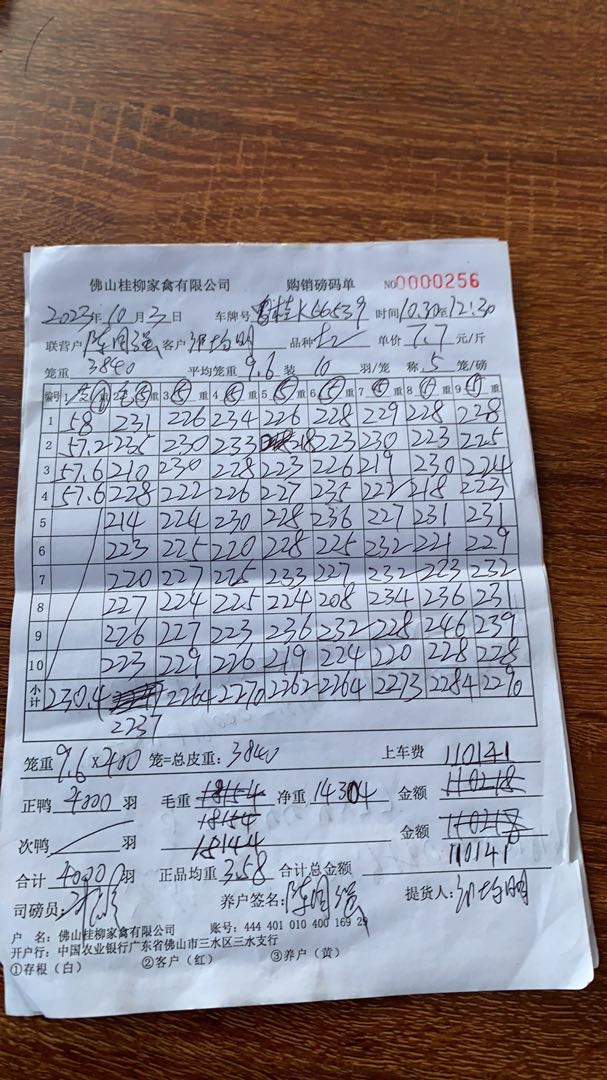 佛山桂柳家禽有限公司 购销磅码单 NO0000256
2023年10月2日 车牌号 K66539 时间10.30至12:30
联营户 陈 客户 邓均明 品种 单价 7.7 元/斤
笼重 3840 平均笼重 9.6 装 10 羽/笼 称 5 笼/磅
编号 1 重 2 重 3 重 4 重 5 重 6 重 7 重 8 重 9 重
1 58 231 226 234 226 228 229 228 228
2 57.2 235 230 233 218 223 230 223 225
3 57.6 210 230 228 223 226 219 230 224
4 57.6 228 222 226 227 235 222 218 223
5 214 224 230 228 236 227 231 231
6 223 225 220 228 225 232 221 229
7 220 227 225 233 227 232 223 232
8 227 224 225 224 208 234 236 231
9 226 227 223 236 232 228 246 239
10 223 229 226 219 224 220 228 228
小计 230.4 2264 2270 2262 2264 2273 2284 2290
2237
笼重 9.6×400 笼=总皮重: 3840 上车费 110141
正鸭 4000 羽 毛重 18154 净重 14304 金额 110218
18154
次鸭 羽 18144 金额
110141
合计 4000 羽 正品均重 3.58 合计总金额
司磅员: 养户签名: 陈 提货人: 邓均明
户 名: 佛山桂柳家禽有限公司 账号: 444 401 010 400 169 29
开户行: 中国农业银行广东省佛山市三水区三水支行
①存根(白) ②客户(红) ③养户(黄)